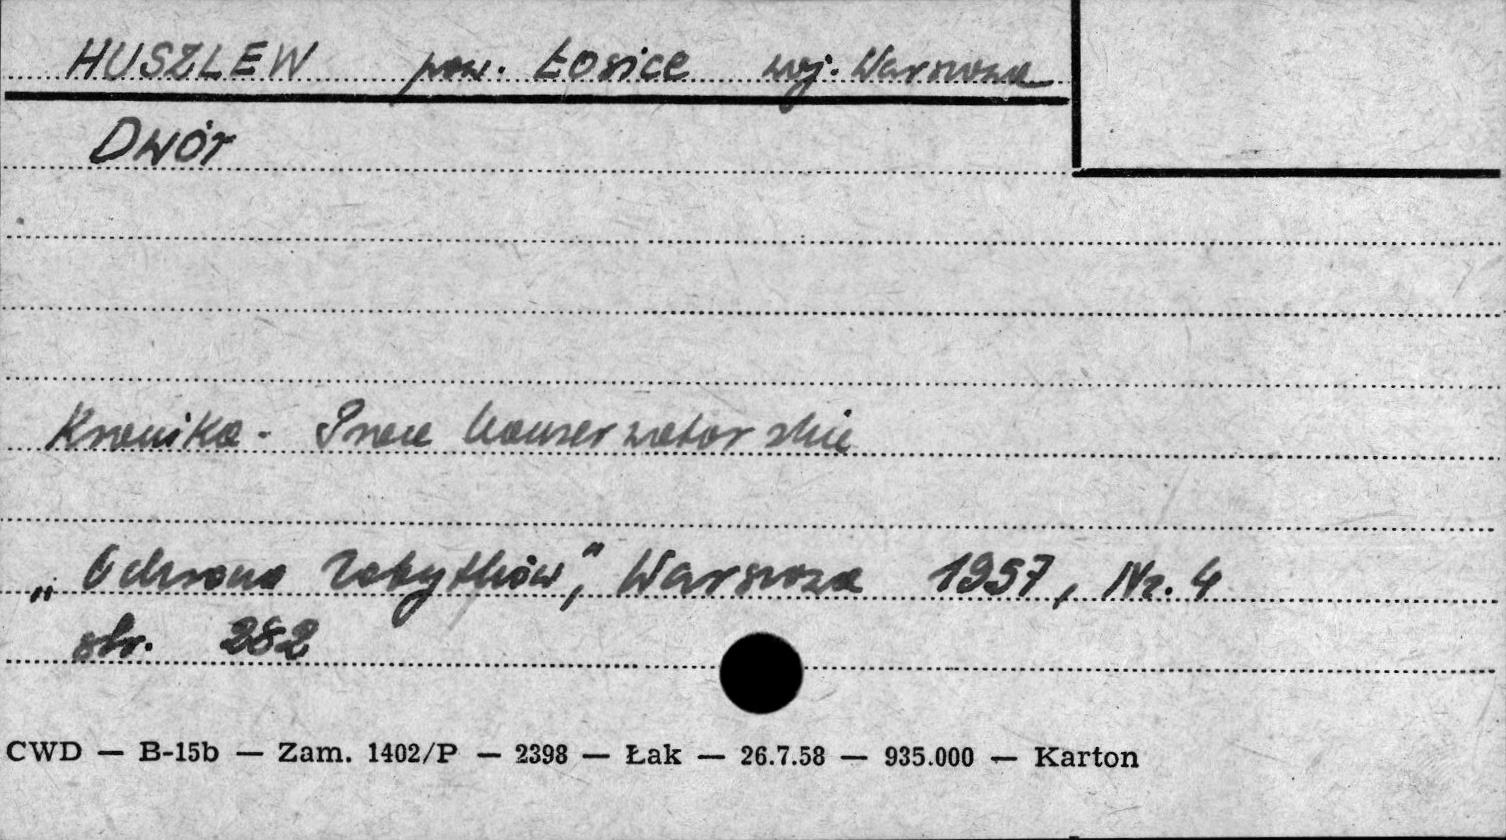 HUSZLEW pow. Łosice woj. Warszawa
Dwór
Kronika - Prace konserwatorskie
„Ochrona Zabytków", Warszawa 1957, Nr. 4
str. 282
CWD — B-15b — Zam. 1402/P — 2398 — Łak — 26.7.58 — 935.000 — Karton